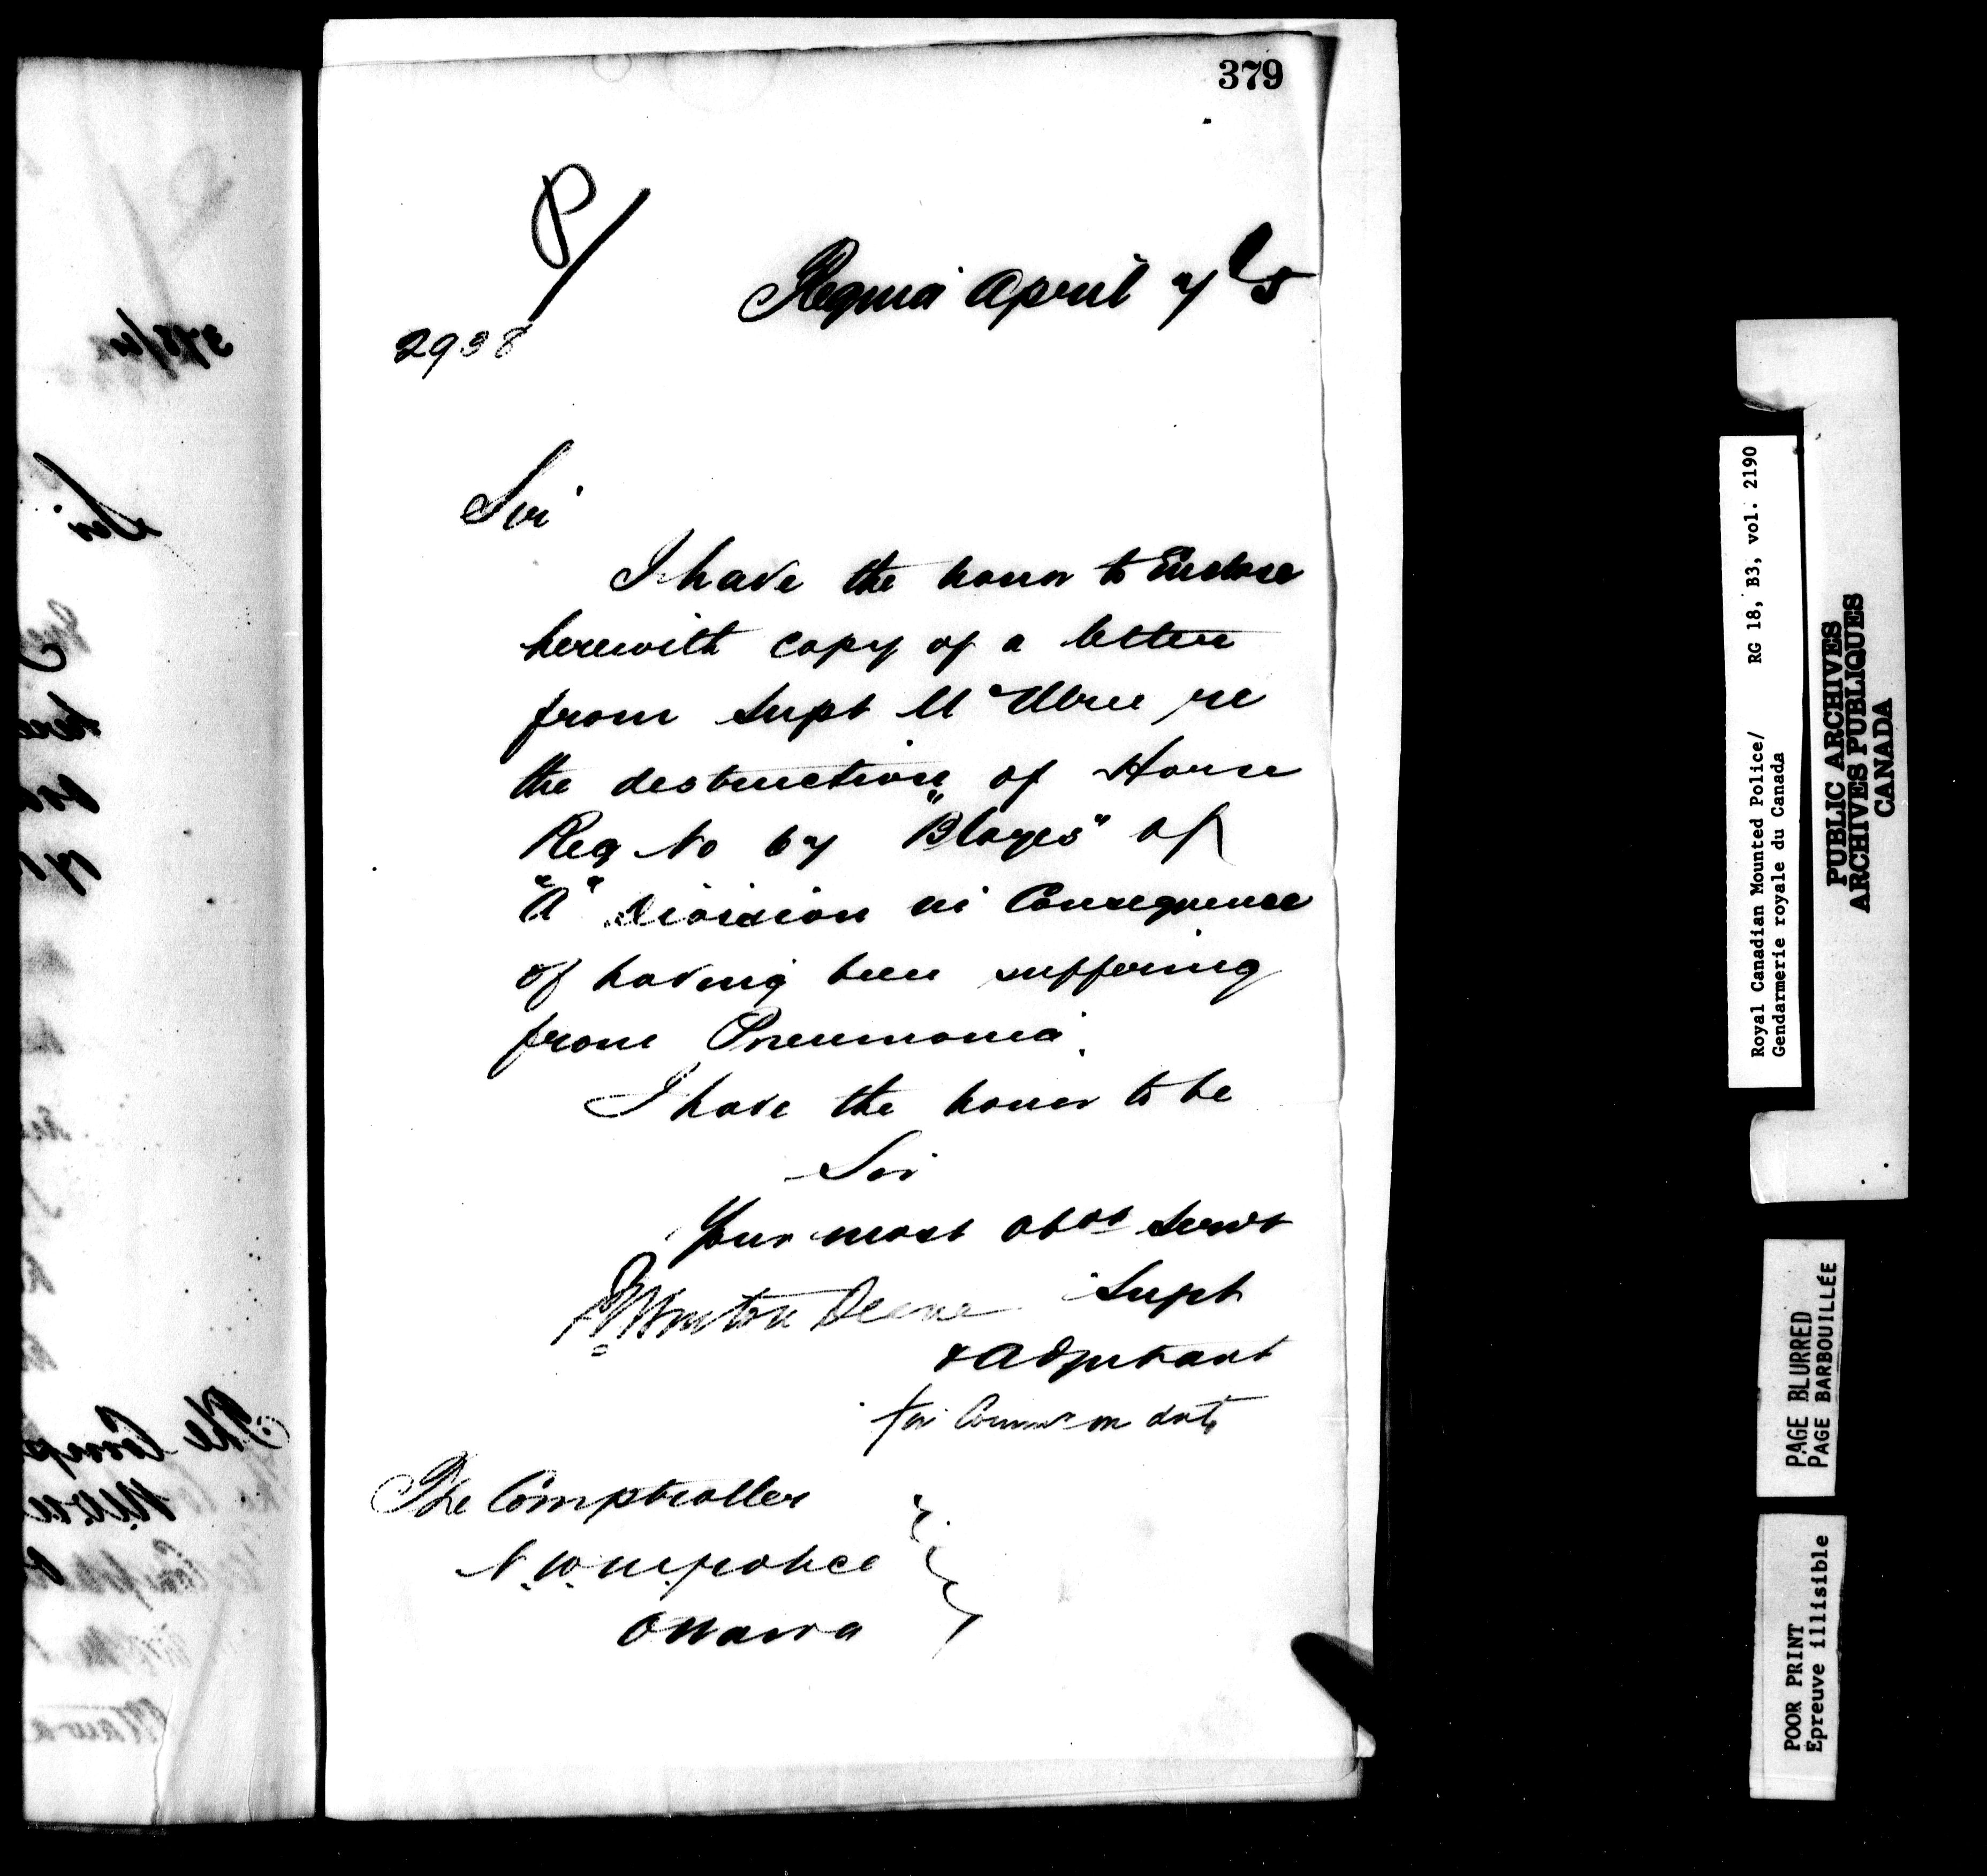 379
P/
Regina April 7 85
2938
Sir
I have the honor to Enclose
herewith copy of a letter
from Supt McIllree re
the destruction of Horse
Reg No 67 "Blazes" of
"A" Division in Consequence
of having been suffering
from Pneumonia.
I have the honor to be
Sir
Your most obdt Servt
R Burton Deane Supt
& Adjutant
for Commr on duty
The Comptroller
N.W.M. police
Ottawa
Royal Canadian Mounted Police/ RG 18, B3, vol. 2190
Gendarmerie royale du Canada
PUBLIC ARCHIVES
ARCHIVES PUBLIQUES
CANADA
PAGE BLURRED
PAGE BARBOUILLÉE
POOR PRINT
Epreuve illisible